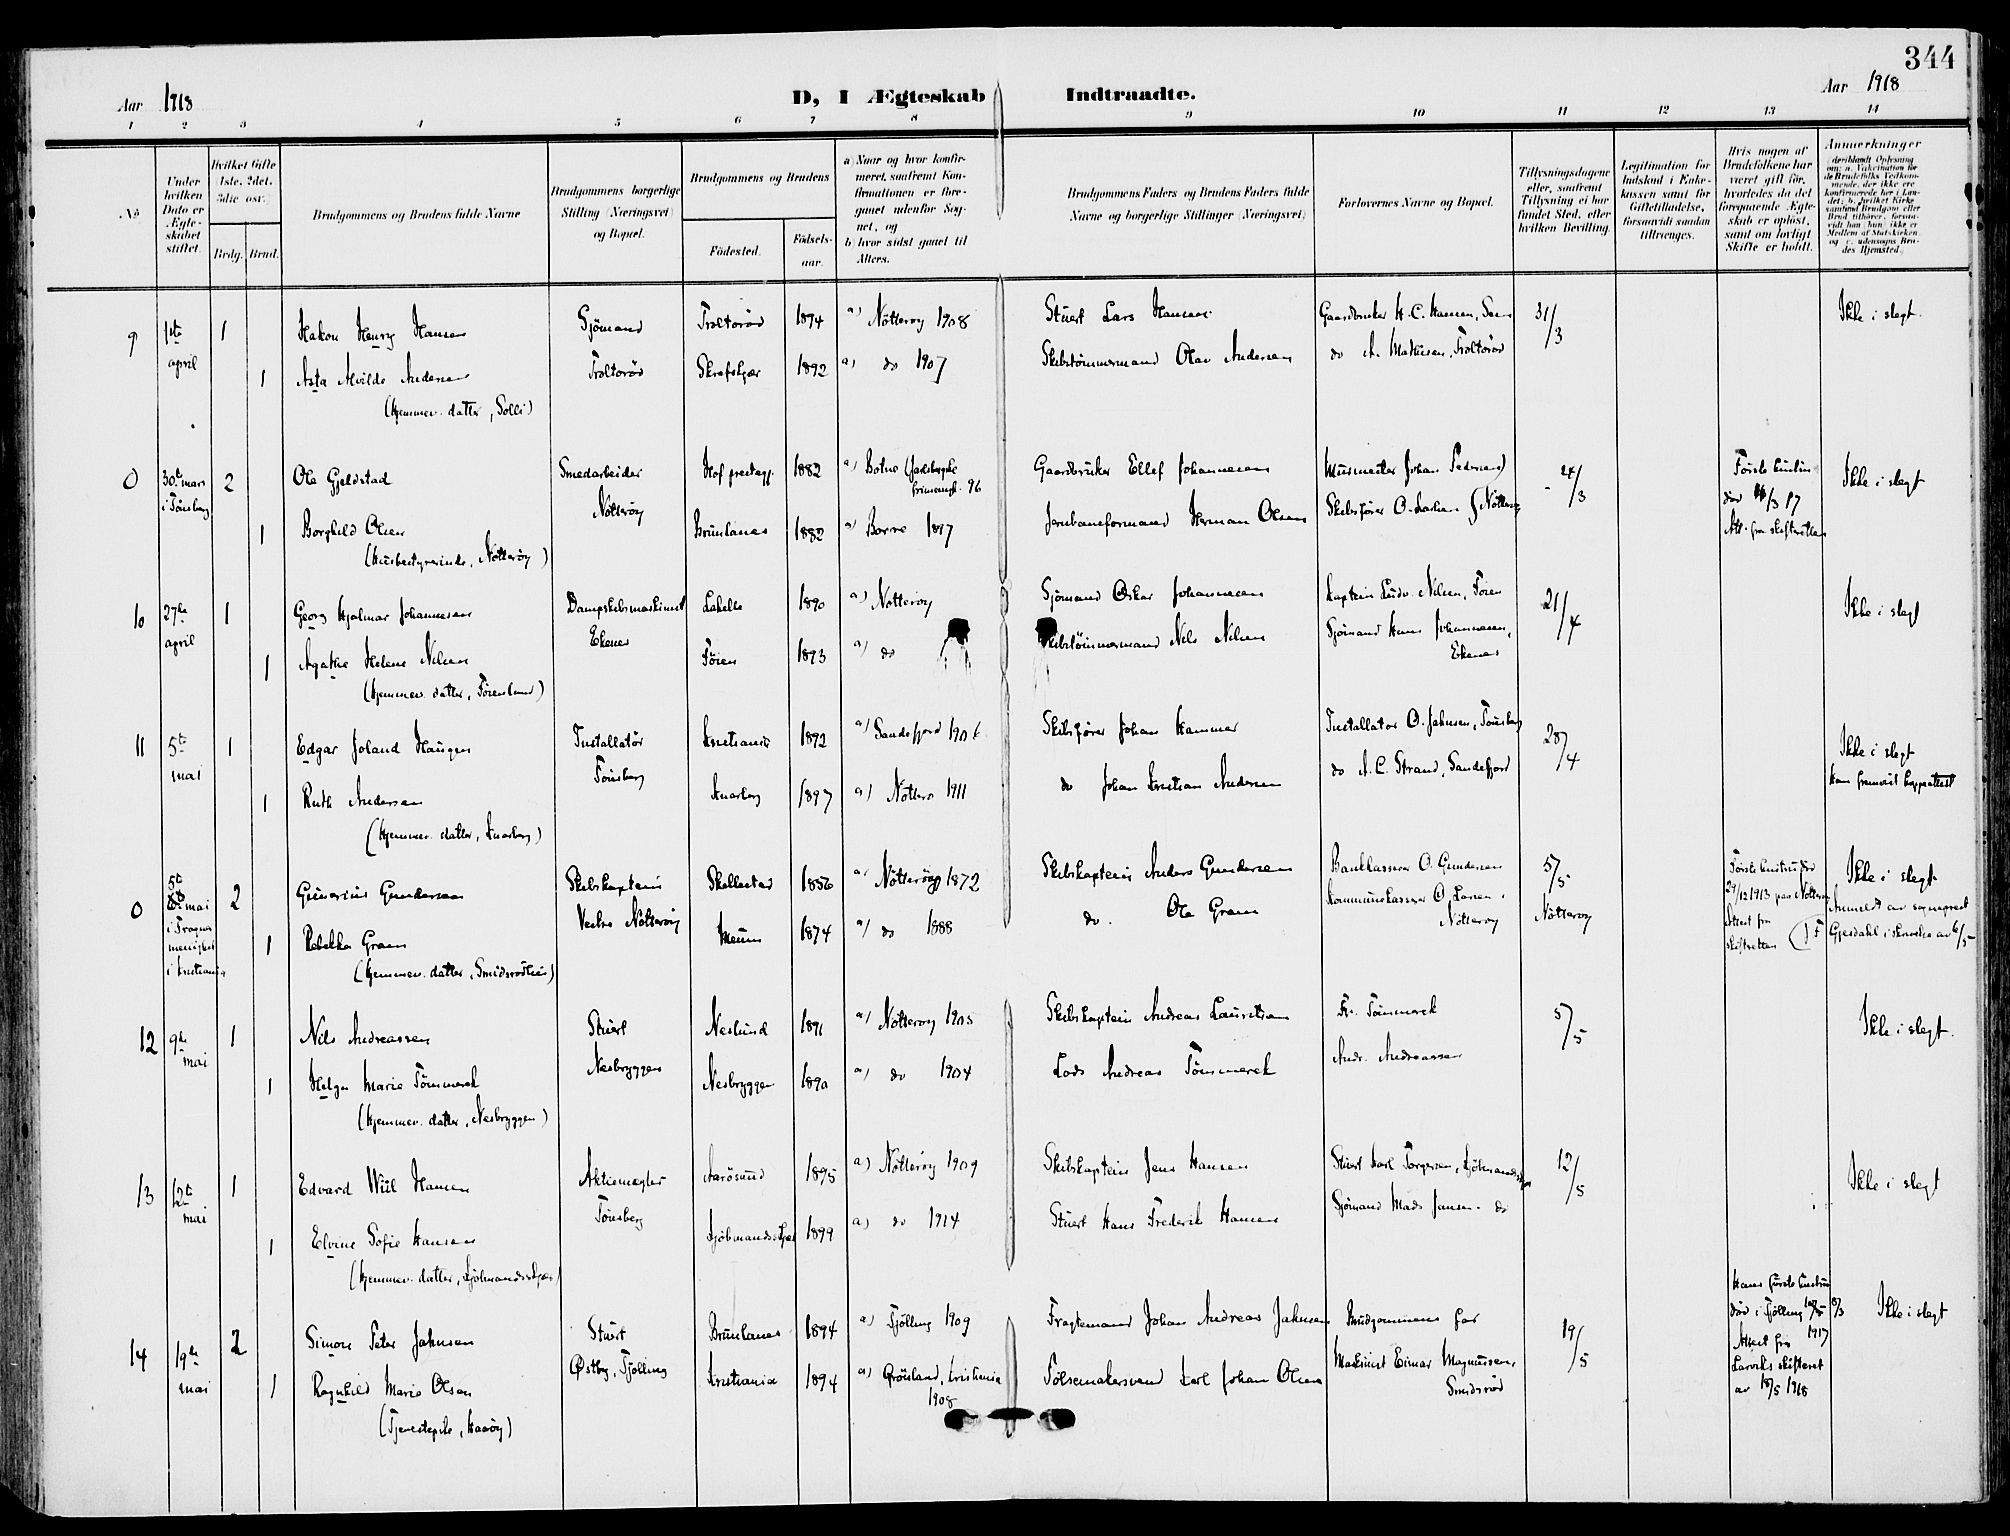 344
Aar 1918
D, I Ægteskab Indtraadte.
Aar 1918
1 2 3 4 5 6 7 8 9 10 11 12 13 14
No.
Under hvilken Dato er Ægteskabet stiftet.
Hvilket Gifte 1ste, 2det, 3die osv.)
Brdg. Brud.
Brudgommens og Brudens fulde Navne
Brudgommens borgerlige Stilling (Næringsvei) og Bopæl.
Brudgommens og Brudens
Födested. Födselsaar.
a) Naar og hvor konfirmeret, saafremt Konfirmationen er foregaaet udenfor Sognet, og
b) hvor sidst gaaet til Alters.
Brudgommens Faders og Brudens Faders fulde Navne og borgerlige Stillinger (Næringsvei)
Forlovernes Navne og Bopæl.
Tillysningsdagene eller, saafremt Tillysning ei har fundet Sted, efter hvilken Bevilling.
Legitimation for Indskud i Enkekassen samt for Giftetilladelse, forsaavidt saadan tiltrænges.
Hvis nogen af Brudefolkene har været gift før, hvorledes da det foregaaende Ægteskab er opløst, samt om lovligt Skifte er holdt.
Anmærkninger
9 1ste april 1 Hakon Henry Hansen Sjömand Troltorød 1894 a) Nötterøy 1908 Stuert Lars Hansen Gaardbruker H. C. Hansen, Sem 31/3 Ikke i slegt.
1 Asta Alvilde Andersen Troltorød 1892 a) do 1907 Skibstömmermand Olav Andersen do A. Mathisen, Troltorød
(hjemmev. datter, Solli)
0 30te mars i Tønsberg 2 Ola Gjelstad Smedarbeider Hof prestegj. 1882 a) Botne 96 Gaardbruker Ellef Johannesen Murmester Johan Pedersen 24/3 Ikke i slegt
Nötterøy
1 Borghild Olsen Brunlanes 1882 a) Borre 1897 Jernbaneformand Herman Olsen Skibsfører O. Larsen Nötterøy
(Husbestyrerinde, Nötterøy)
Første hustru död 16/3 17
Att. fra skifteretten
10 27de april 1 Georg Hjalmar Johannesen Dampskibsmaskinist 1890 a) Nötterøy Sjömand Oskar Johannesen Kaptein Ludv. Nilsen, Föien 21/4 Ikke i slegt
Ekenes
1 Agathe Helene Nilsen Föien 1893 a) do Skibstömmermand Nils Nilsen Sjömand Hans Johannesen, Ekenes
(hjemmev. datter, Föienlund)
11 5te mai 1 Edgar Joland Haugen Installatör Kristiania 1892 a) Sandefjord 1906 Skibsfører Johan Hammer Installatör O. Jahnsen, Tönsberg 28/4 Ikke i slegt
Tönsberg
1 Ruth Andersen Knarberg 1897 a) Nötterø 1911 do Johan Kristian Andersen do A. C. Strand, Sandefjord
(hjemmev. datter, Knarberg)
0 5te mai i Fragner menighet i Kristiania 2 Gunerius Gundersen Skibskaptein Skallestad 1856 a) Nötterøy 1872 Skibskaptein Anders Gundersen Bankkasserer O. Gundersen 5/5 Nötterøy Ikke i slegt
Vestre Nötterøy
1 Rebekka Gram Meum 1874 a) do 1888 do. Ola Gram Kommunekasserer O. Larsen, Nötterøy
(hjemmev. datter, Smidsrödlien)
Første hustru död 29/12 1913 paa Nötterøy attest fra skifteretten
Anmeldt av sogneprest Gjesdahl i skrivelse av 6/5
12 9de mai 1 Nils Andreassen Stuert Neslund 1891 a) Nötterøy 1905 Skibskaptein Andreas Lauritsen Fr. Tömmerek 5/5 Ikke i slegt.
Nesbryggen
1 Helga Marie Tömmerek Nesbryggen 1890 a) do 1904 Lods Andreas Tömmerek Andr. Andreassen
(hjemmev. datter, Nesbryggen)
13 12te mai 1 Edvard Wiil Hansen Aktiemegler Aarösund 1895 a) Nötterøy 1909 Skibskaptein Jens Hansen Stuert Karl Torgersen, Kjöbmandsskjær 12/5 Ikke i slegt
Tönsberg
1 Elvine Sofie Hansen Kjöbmandsskjær 1899 a) do 1914 Stuert Hans Frederik Hansen Sjömand Mads Jansen. do
(hjemmev. datter, Kjöbmandsskjær)
14 19de mai 2 Simon Peter Jahnsen Stuert Brunlanes 1894 a) Tjölling 1909 Fragtemand Johan Andreas Jahnsen Brudgommens far 19/5 Ikke i slegt
Østby, Tjölling
1 Ragnhild Marie Olsen Kristiania 1894 a) Grönland, Kristiania 1908 Pölsemakersvend Karl Johan Olsen Maskinist Einar Magnussen, Smidsrød
(Tjenestepike, Haaöy)
Hans første hustru död i Tjölling 1917
Attest fra Larviks skifteret av 18/5 1918